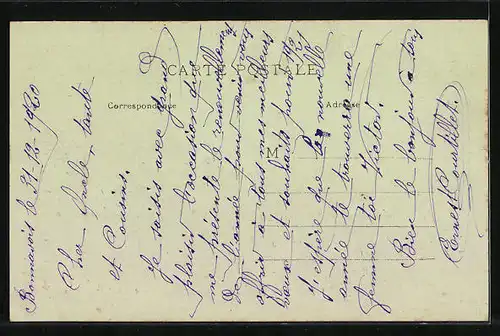 CARTE POSTALE
Correspondance
Adresse
M
Bonnarois le 31-12-1920
Cher Oncle, tante
et Cousins.
Je saisis avec grand
plaisir l'occasion que
me présente le renouvellement
de l'année pour venir vous
offrir à tous mes meilleurs
voeux et souhaits pour 1921
J'espère que la nouvelle
année te trouvera une
femme toi Victor.
Bien le bonjour a tous
Ernest